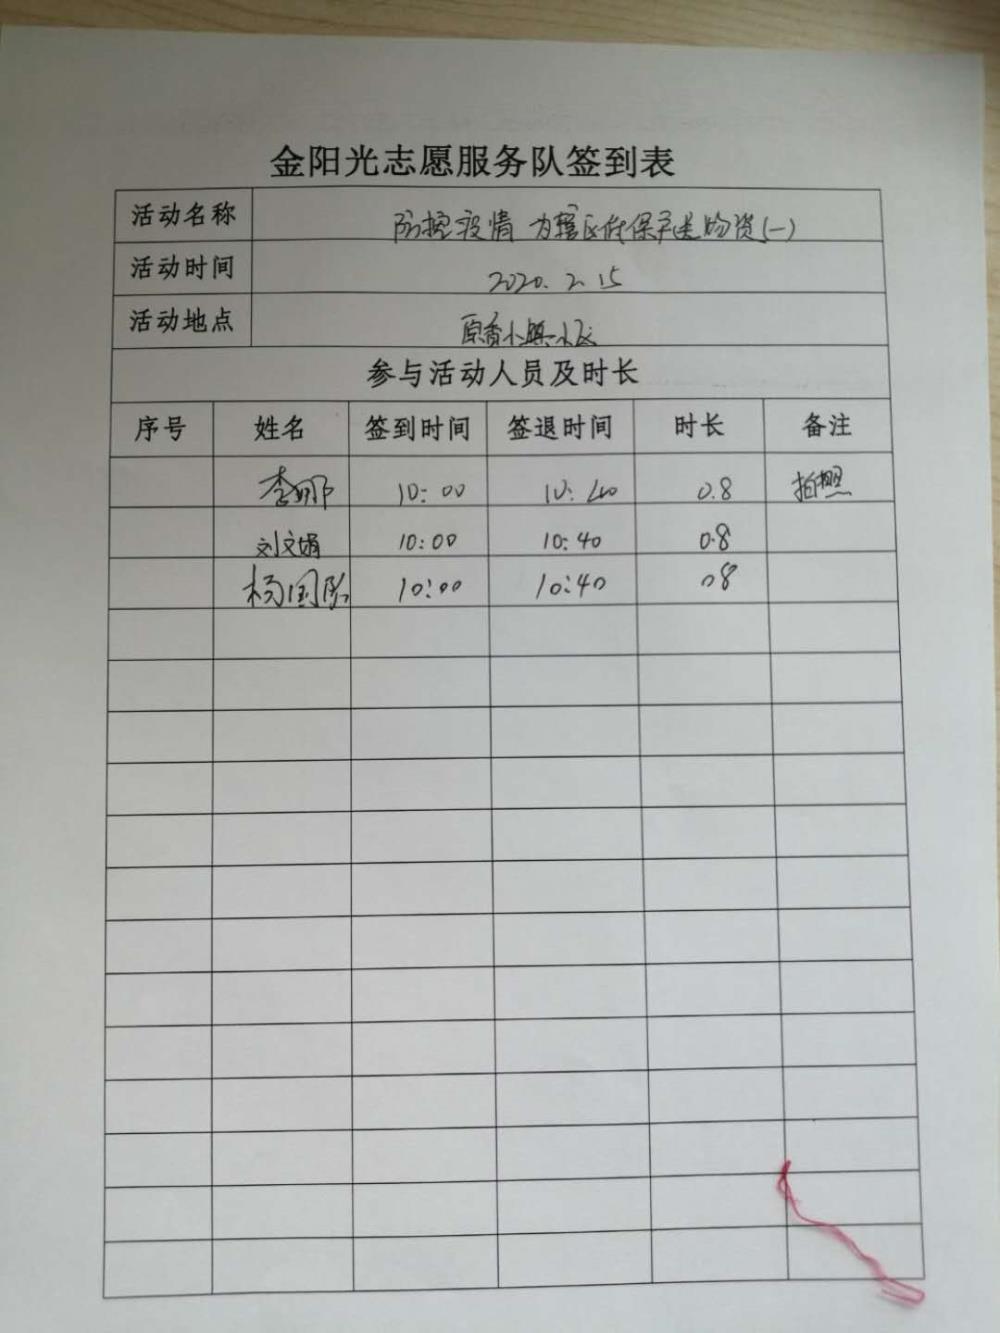 金阳光志愿服务队签到表
活动名称 防控疫情 为辖区低保户送物资(一)
活动时间 2020.2.15
活动地点 原香小镇小区
参与活动人员及时长
序号 姓名 签到时间 签退时间 时长 备注
李娜 10:00 10:40 0.8 拍照
刘文娟 10:00 10:40 0.8
杨国 10:00 10:40 08